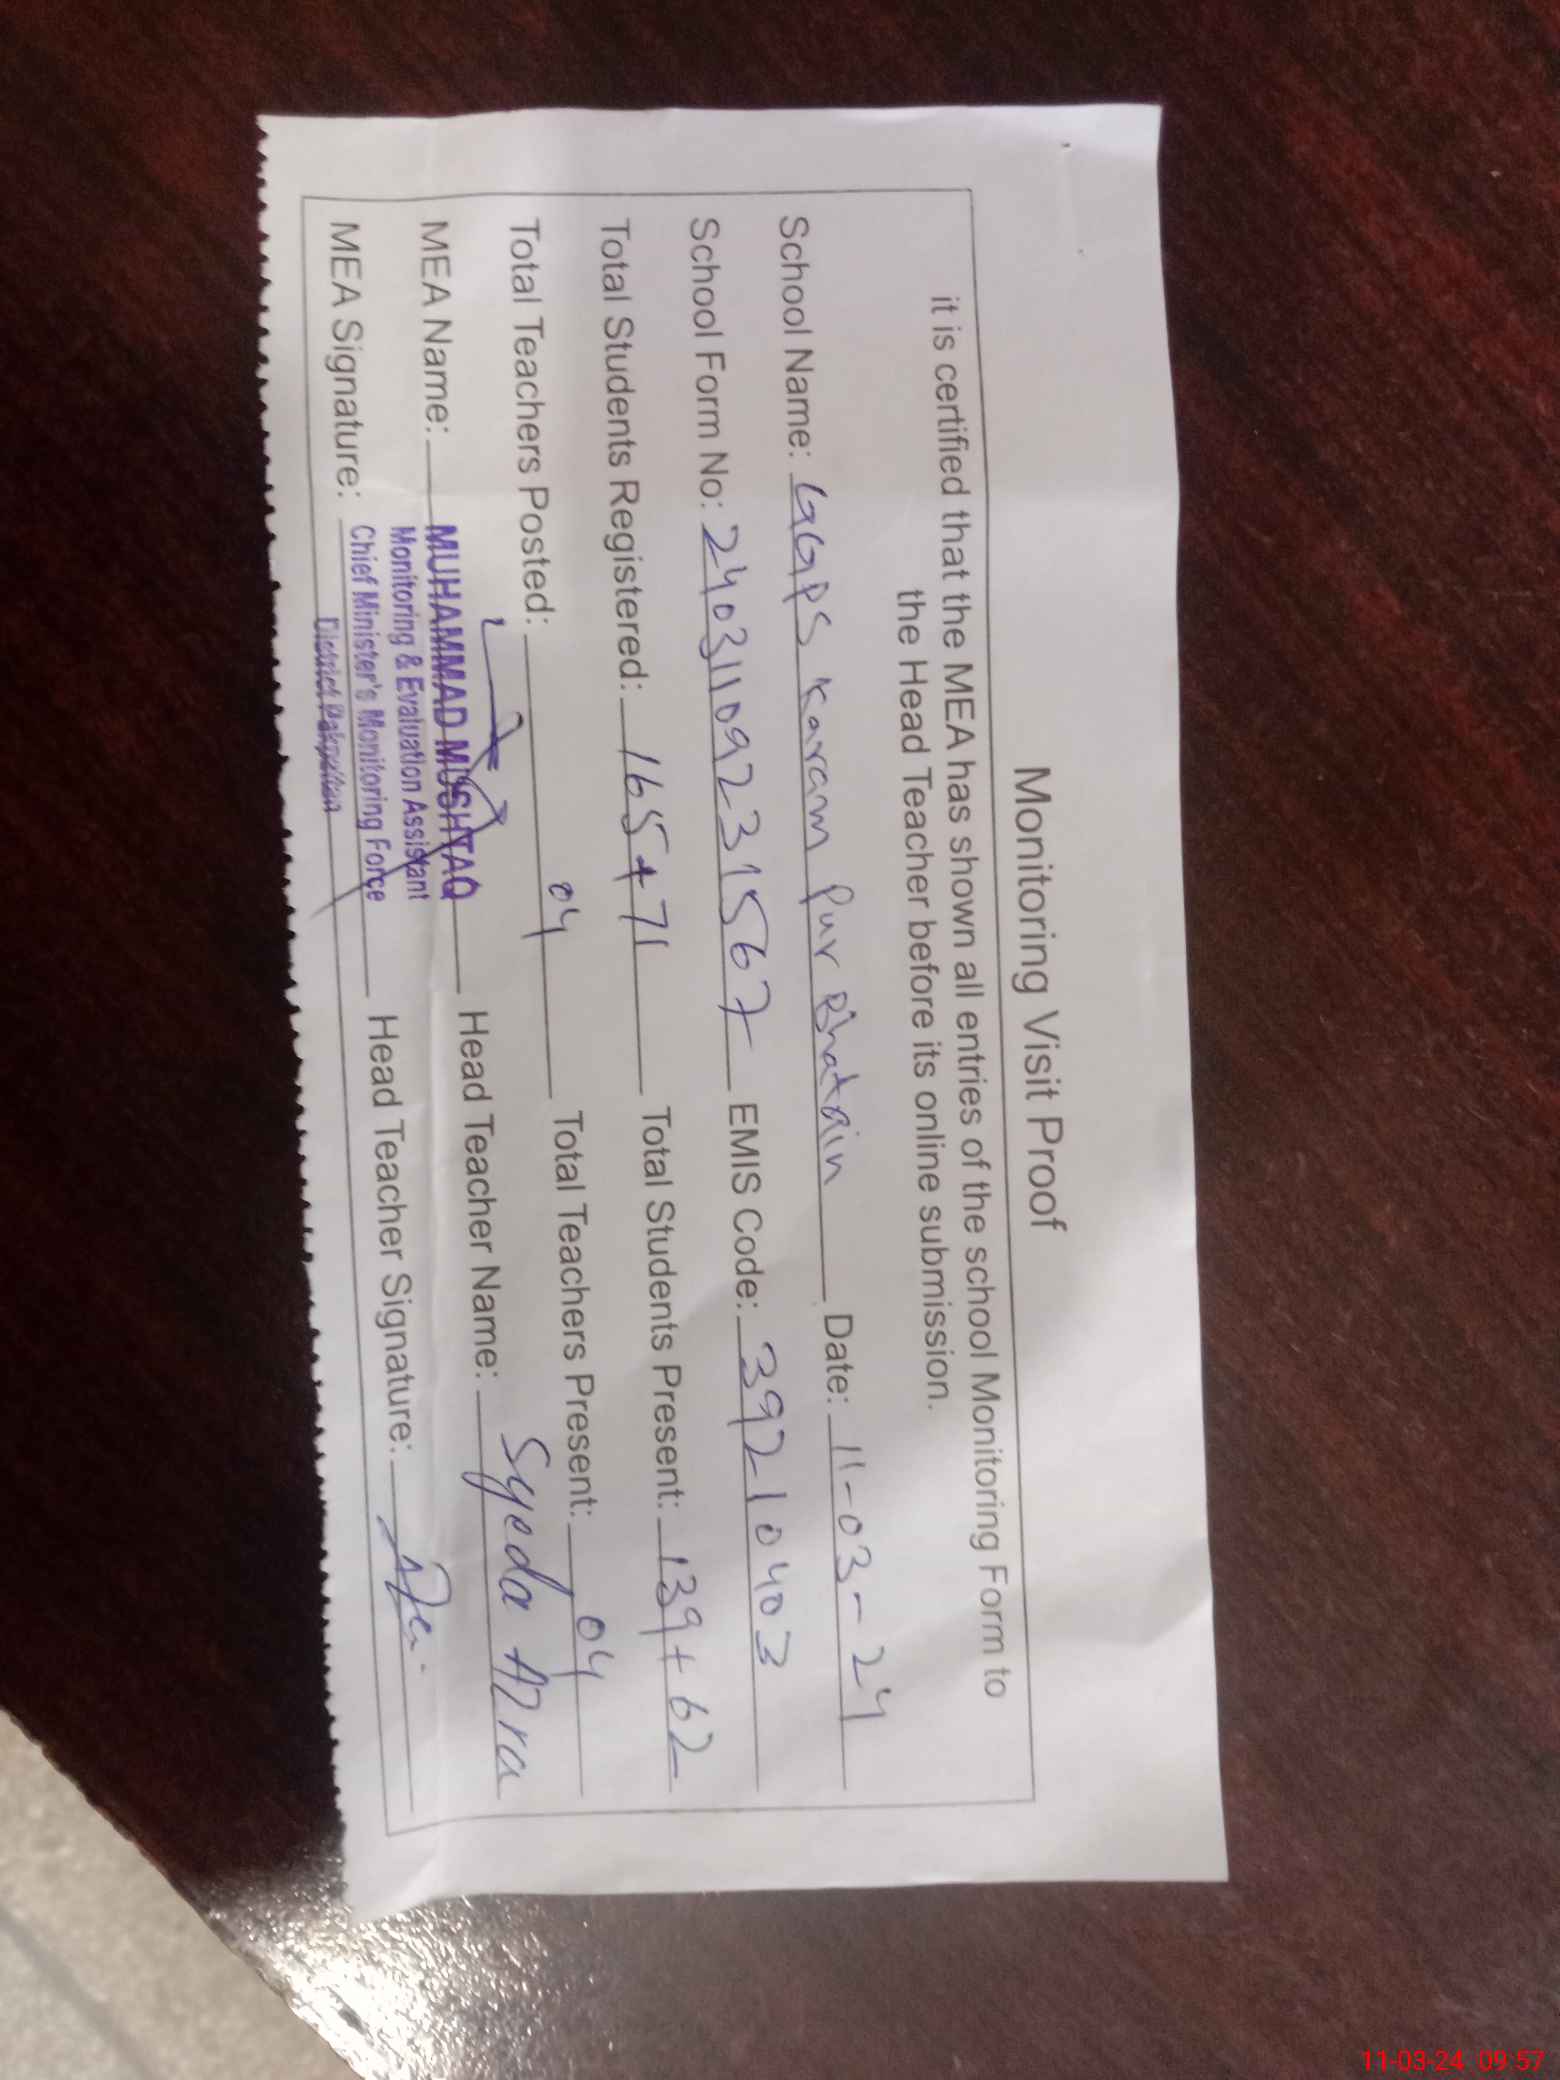 Monitoring Visit Proof
it is certified that the MEA has shown all entries of the school Monitoring Form to
the Head Teacher before its online submission.
School Name: GGPS Karam Pur Bhatain Date: 11-03-24
School Form No: 24031109231567 EMIS Code: 39210403
Total Students Registered: 165+71 Total Students Present: 139+62
Total Teachers Posted: 04 Total Teachers Present: 04
MEA Name: MUHAMMAD MUSHTAQ Head Teacher Name: Syeda Azra
Monitoring & Evaluation Assistant
MEA Signature: Chief Minister's Monitoring Force Head Teacher Signature:
District Pakpattan
11-03-24 09:57